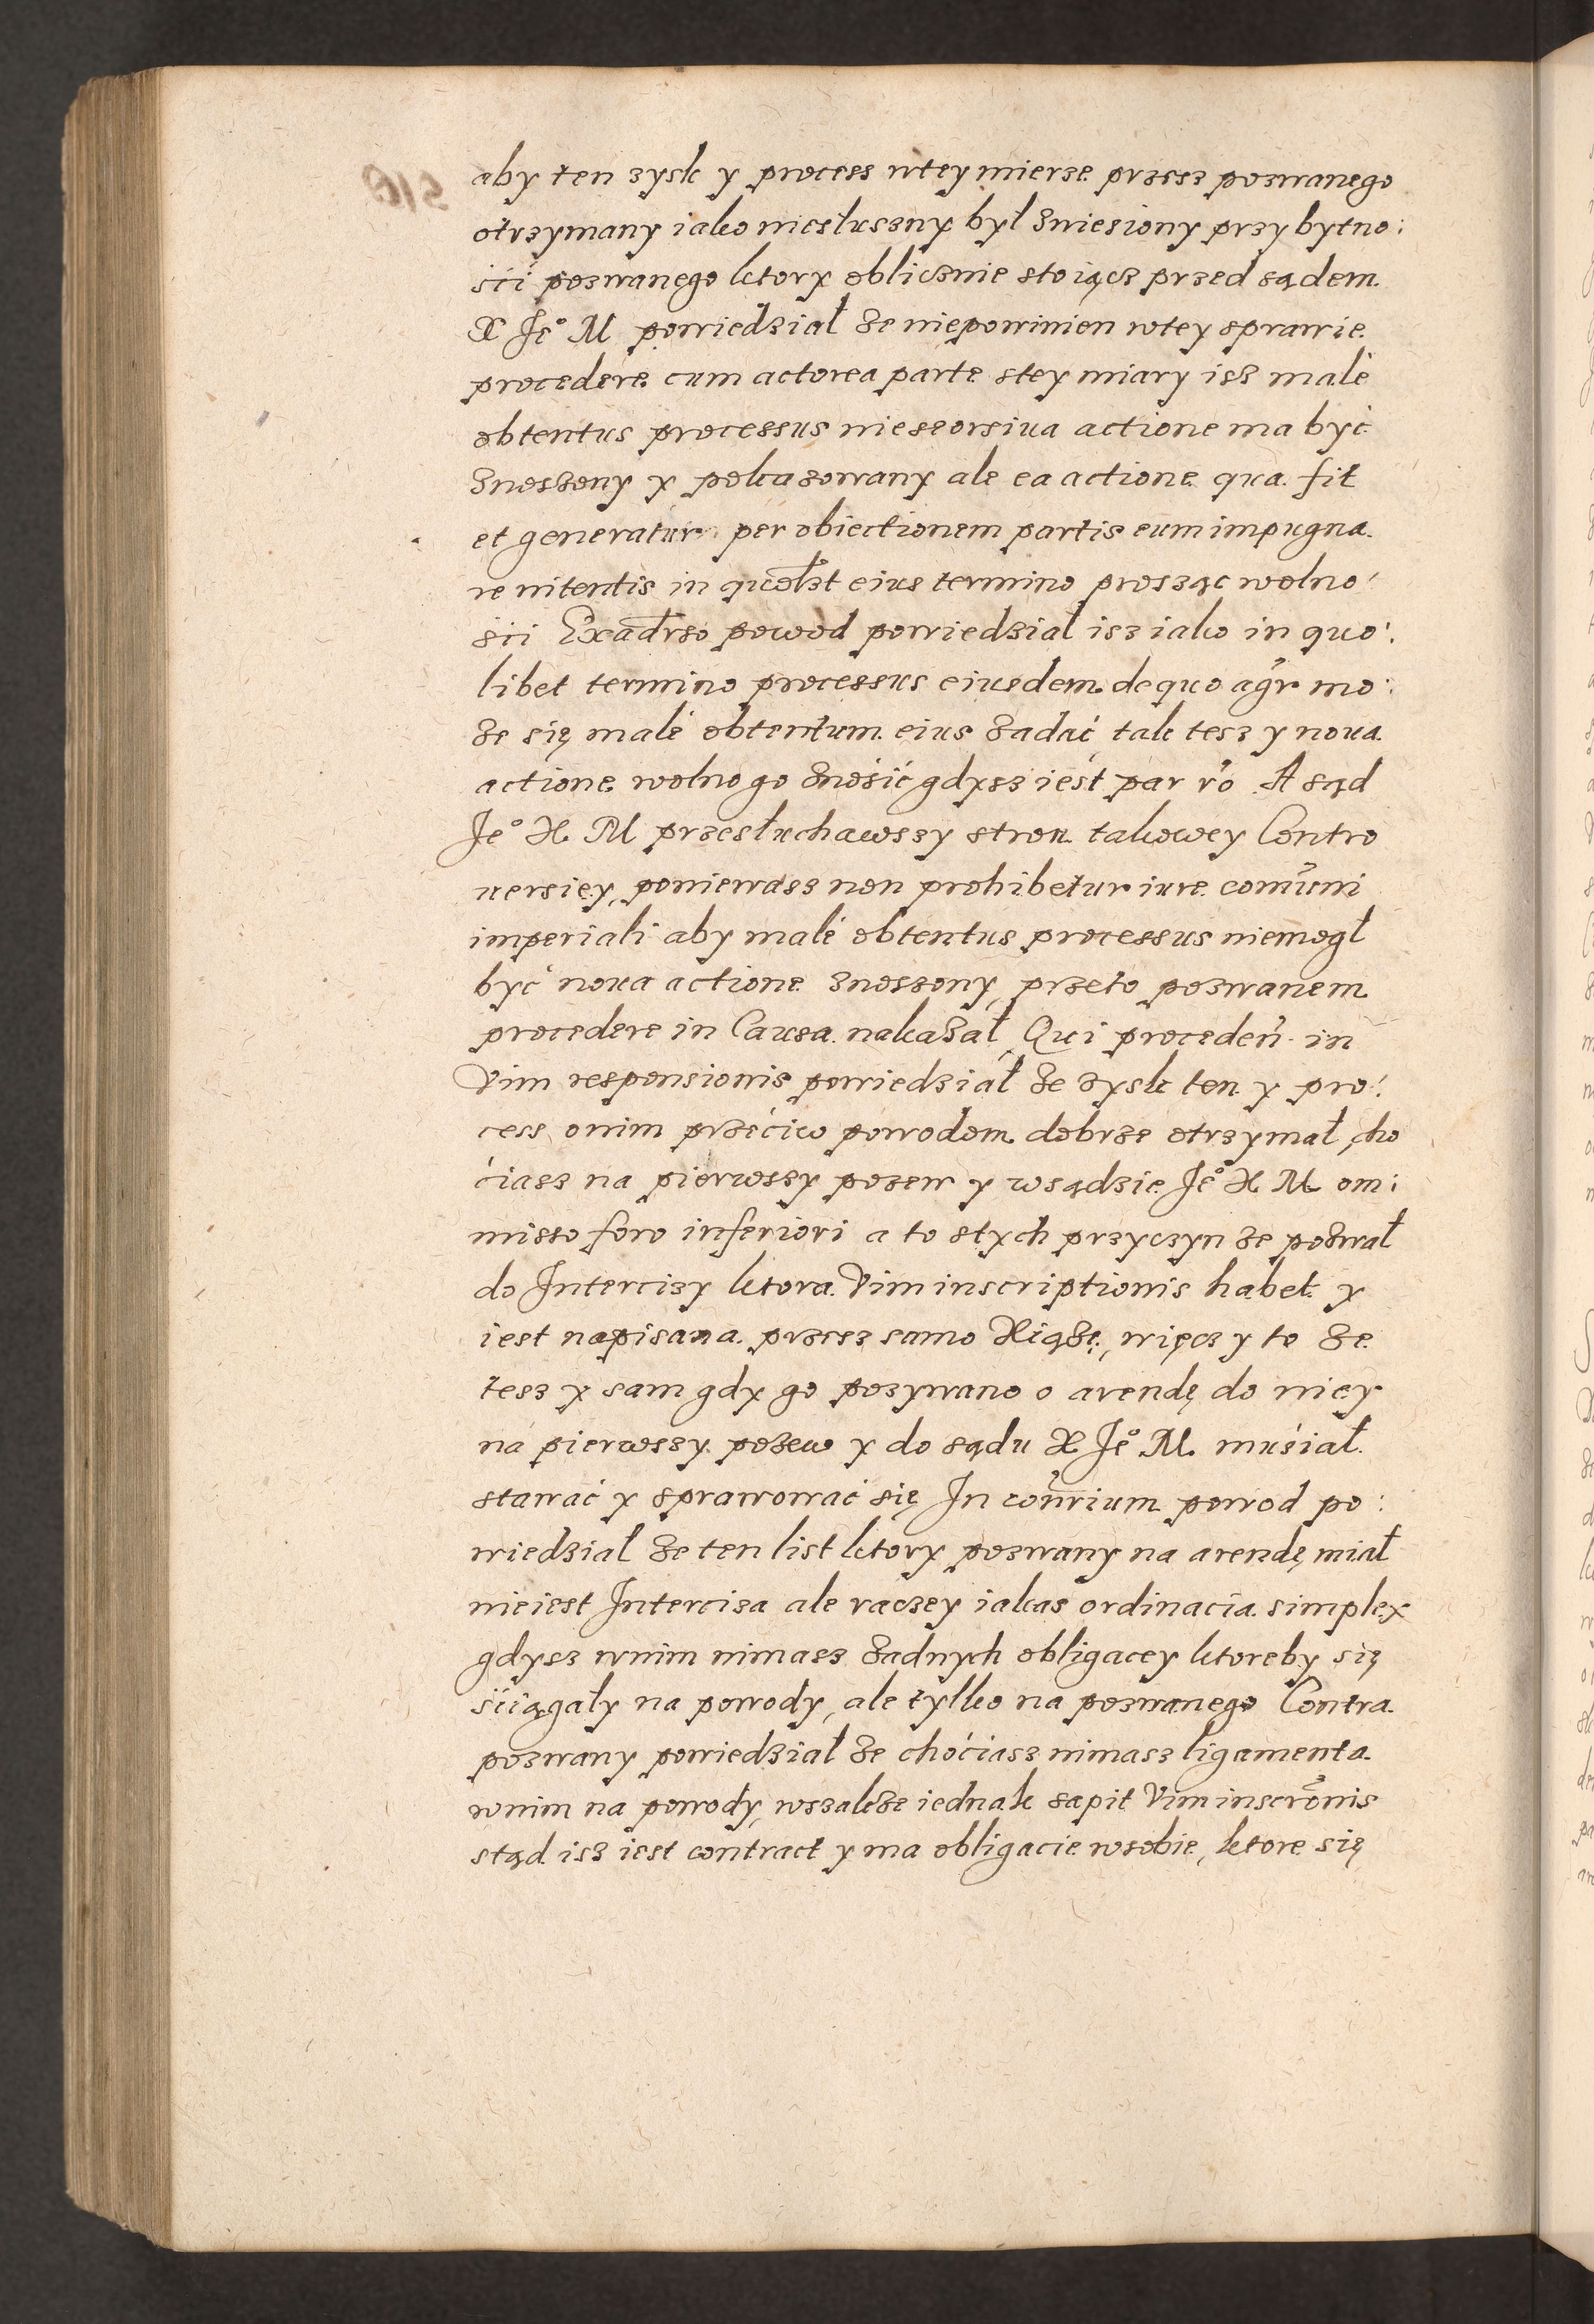 aby ten zysk y process wtey mierze przesz pozwanego
otrzymany iako niesłuszny był zniesiony przy bytno:
sći pozwanego ktory oblicznie stoiącz przed sądem
X Jeº M powiedział ze niepowinien wtey sprawie
procedere cum actorea parte stey miary isz malè
obtentus processus nieseorsiua actione ma być
znoszony y pokazowany ale ea actione qua fit
et generatur per obiectionem partis eum impugna
re nitentis in quolzt eius termino prosząc wolno:
śći Exadrso powod powiedział isz iako in quo:
libet termino processus eiusdem de quo agr mo:
ze się malè obtentum eius zadać, tak tesz y noua
actione wolno go znośić gdysz iest par ro A sąd
Jeº X M przesłuchawszy stron takowey Contro
uersiey, ponierwasz non prohibetur iure comuni
imperiali aby malè obtentus processus niemogł
być noua actione znoszony, przeto pozwanem
procedere in Causa nakazał, Qui proceden in
Vim responsionis powiedział ze zysk ten y pro:
cess onim przećiw powodom dobrze otrzymał, cho
ćiasz na pierwszy pozew y wsądzie Jeº X M om:
misso foro inferiori a to stych przyczyn ze pozwał
do Intercizy ktora Vim inscriptionis habet y
iest napisana przesz samo Xiązę, więcz y to ze
tesz y sam gdy go pozywano o arendę do niey
na pierwszy pozew y do sądu X Jeº M muśiał
stawać y sprawować się In conrium powod po:
wiedział ze ten list ktory pozwany na arendę miał
nieiest Interciza ale raczey iakas ordinacia simplex
gdysz wnim nimasz zadnych obligacey ktoreby się
śćiągały na powody, ale tylko na pozwanego Contra
pozwany powiedział ze choćiasz nimasz ligamenta
wnim na powody, wszakze iednak sapit Vim inscronis
stąd isz iest contract y ma obligacie wsobie, ktore się